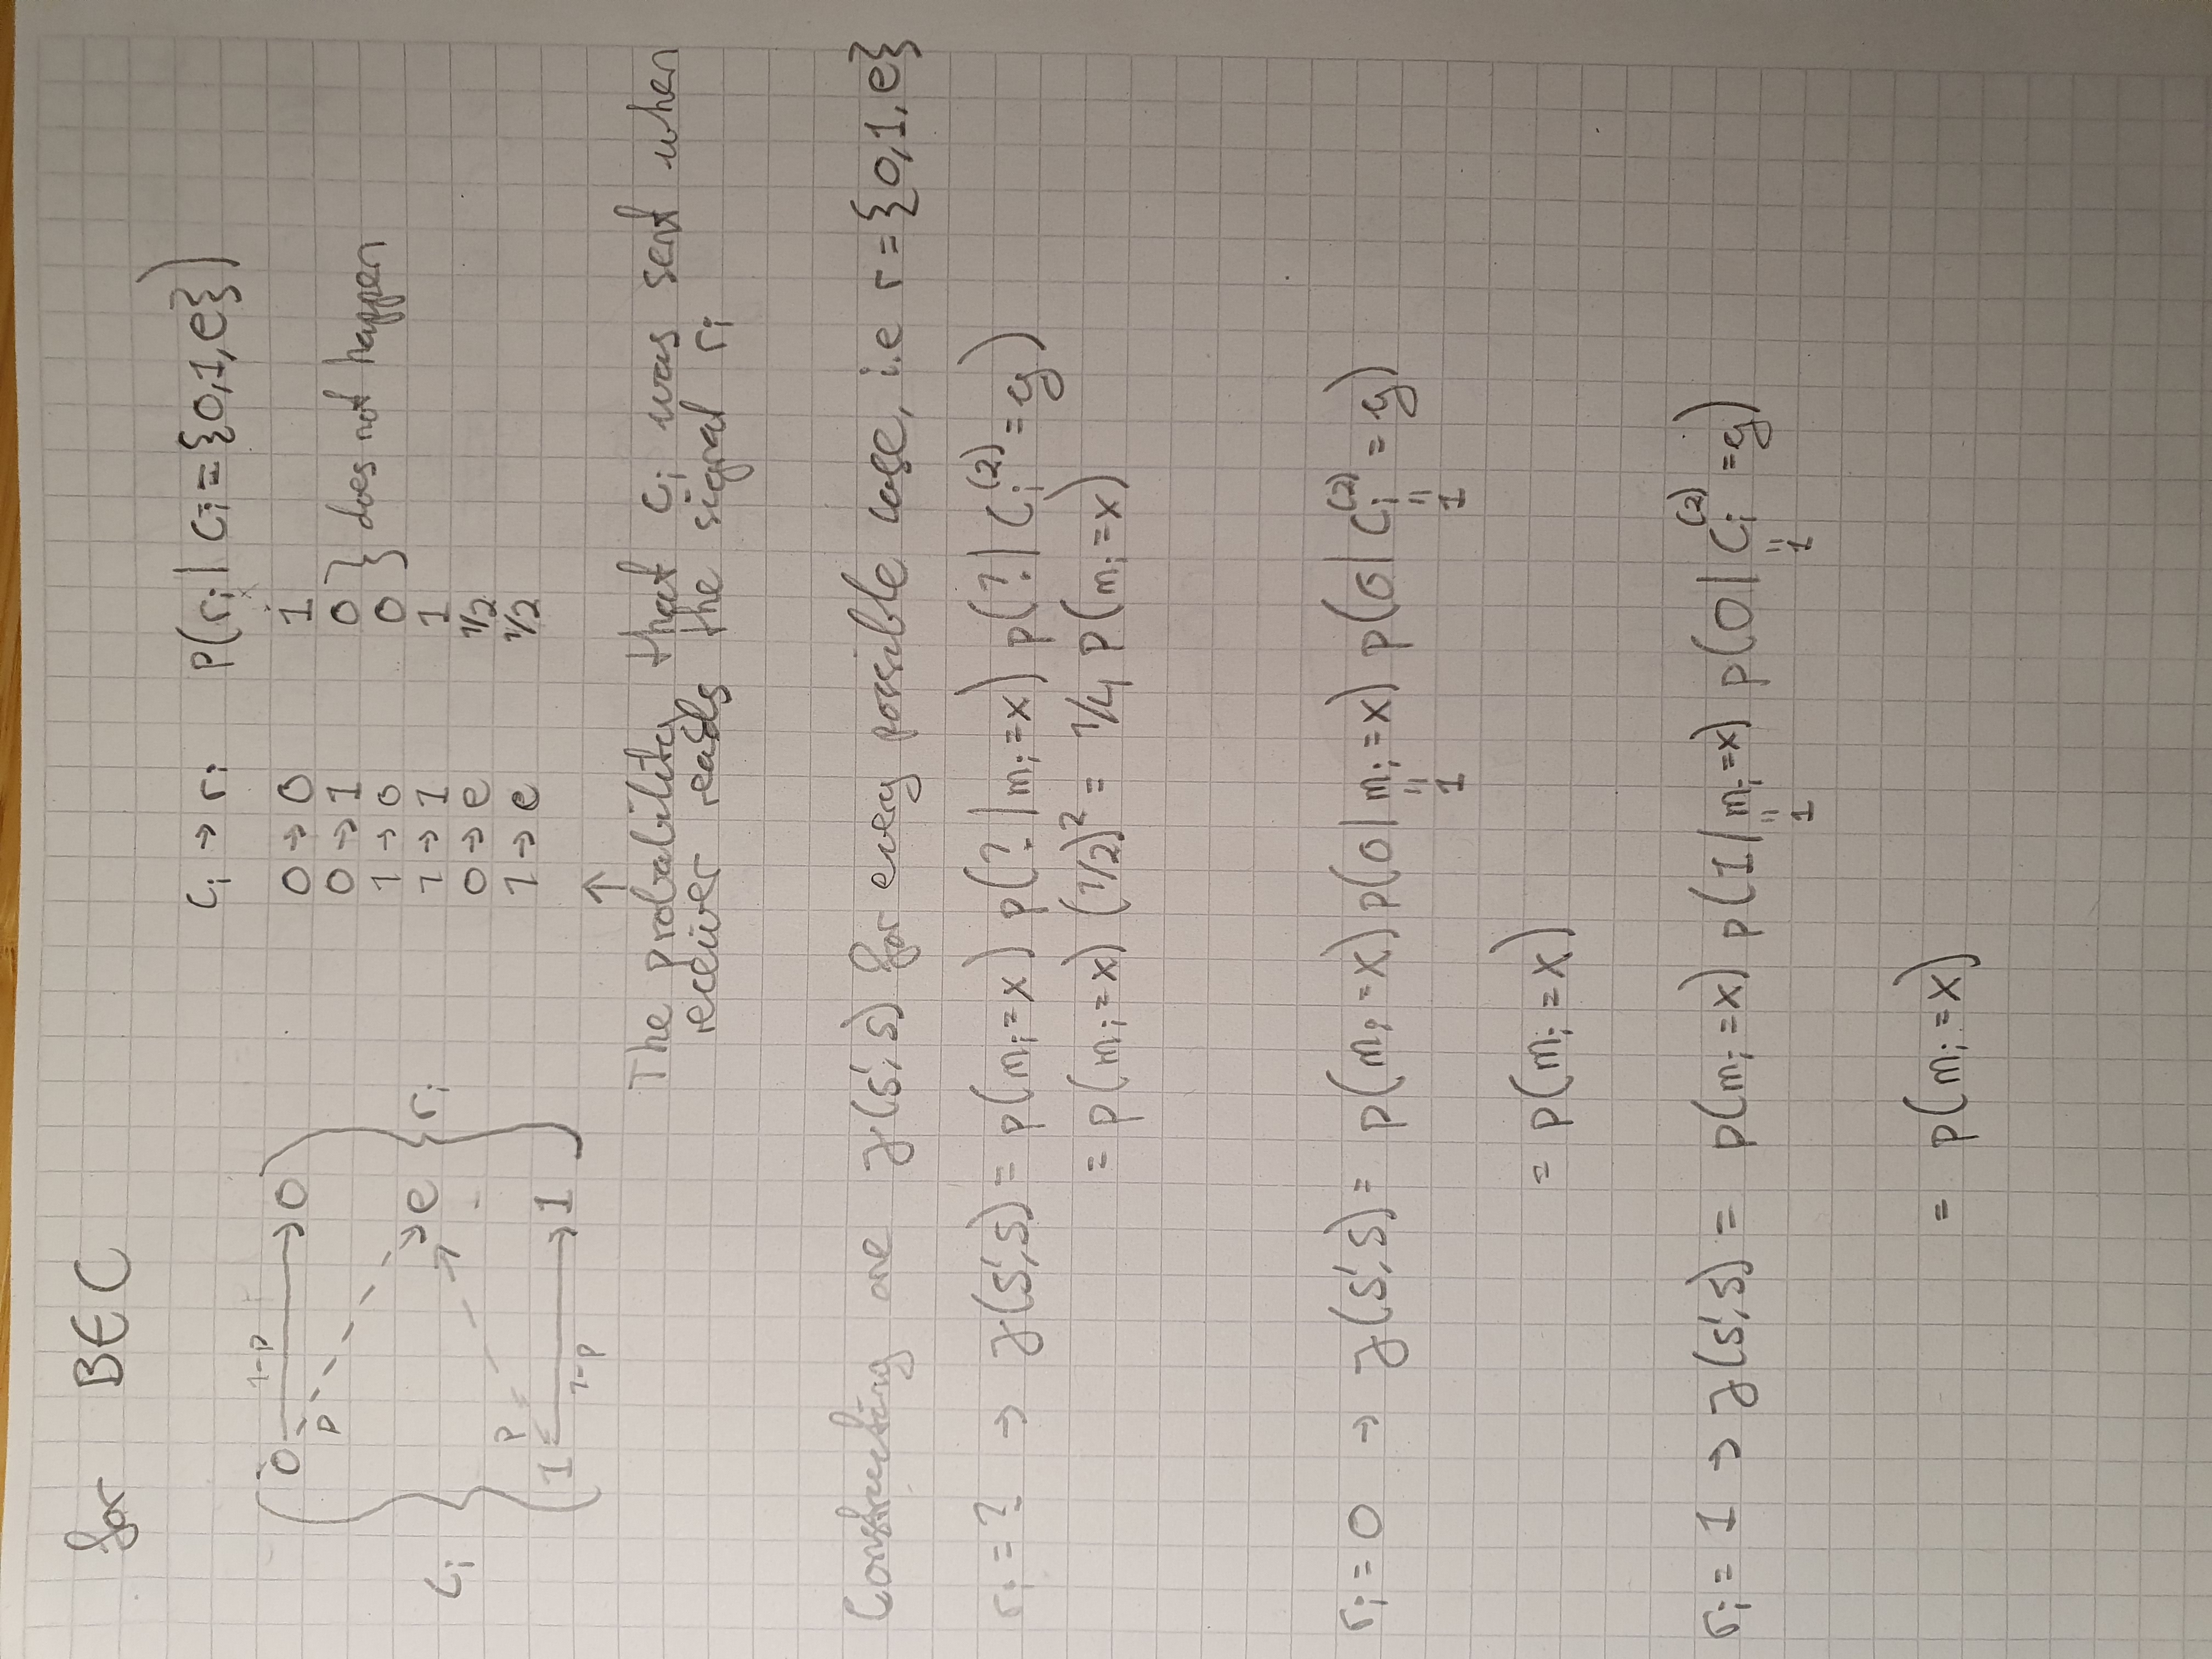 for BEC
c_i → r_i   p(r_i | c_i = {0,1,e})
0 → 0   1
0 → 1   0
1 → 0   0   } does not happen
1 → 1   1
0 → e   1/2
1 → e   1/2
c_i { 0 —1-p→ 0 } r_i
p
e
p
1 —1-p→ 1
↑
The probability that c_i was sent when
receiver reads the signal r_i
Constructing one γ(s',s) for every possible case, i.e r = {0,1,e}
r_i = ? → γ(s',s) = p(m_i = x) p(? | m_i = x) p(? | c_i^(2) = y)
= p(m_i = x) (1/2)^2 = 1/4 p(m_i = x)
r_i = 0 → γ(s',s) = p(m_i = x) p(0 | m_i = x) p(0 | c_i^(2) = y)
= 1   = 1
= p(m_i = x)
r_i = 1 → γ(s',s) = p(m_i = x) p(1 | m_i = x) p(0 | c_i^(2) = y)
= 1   = 1
= p(m_i = x)